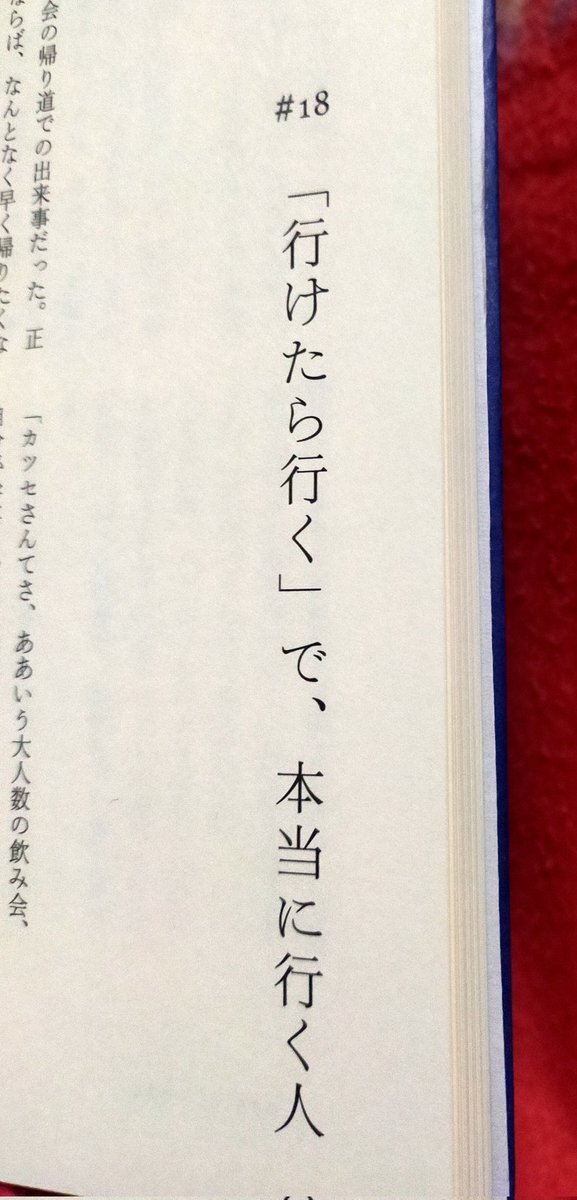 #18 「行けたら行く」で、本当に行く人
会の帰り道での出来事だった。正
ならば、なんとなく早く帰りたくな
「カッセさんてさ、ああいう大人数の飲み会、